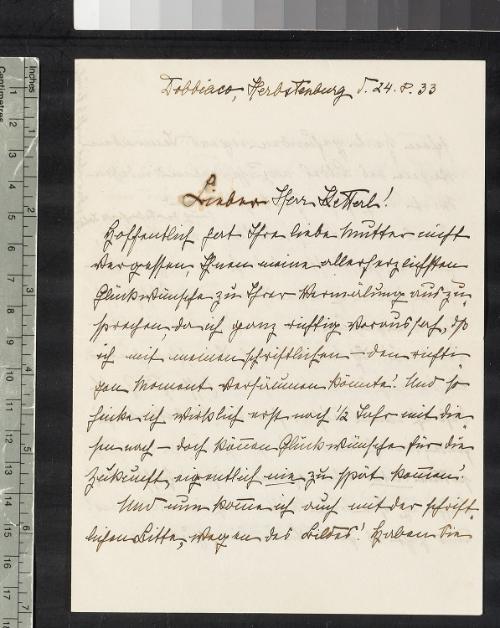 Dobbiaco, Herbstenburg d. 24. 8. 33
Lieber Herr Ketterl!
Hoffentlich hat Ihre liebe Mutter nicht
vergessen, Ihnen meine allerherzlichsten
Glückwünsche zu Ihrer Vermälung auszu
sprechen, da ich ganz richtig voraussah, dß
ich mit meinen schriftlichen – den richti
gen Moment versäumen könnte! Und so
hinke ich wirklich erst nach ½ Jahr mit die
sen nach – doch können Glückwünsche für die
Zukunft eigentlich nie zu spät kommen!
Und nun komme ich auch mit der schrift
lichen Bitte, wegen des Bildes! Haben Sie